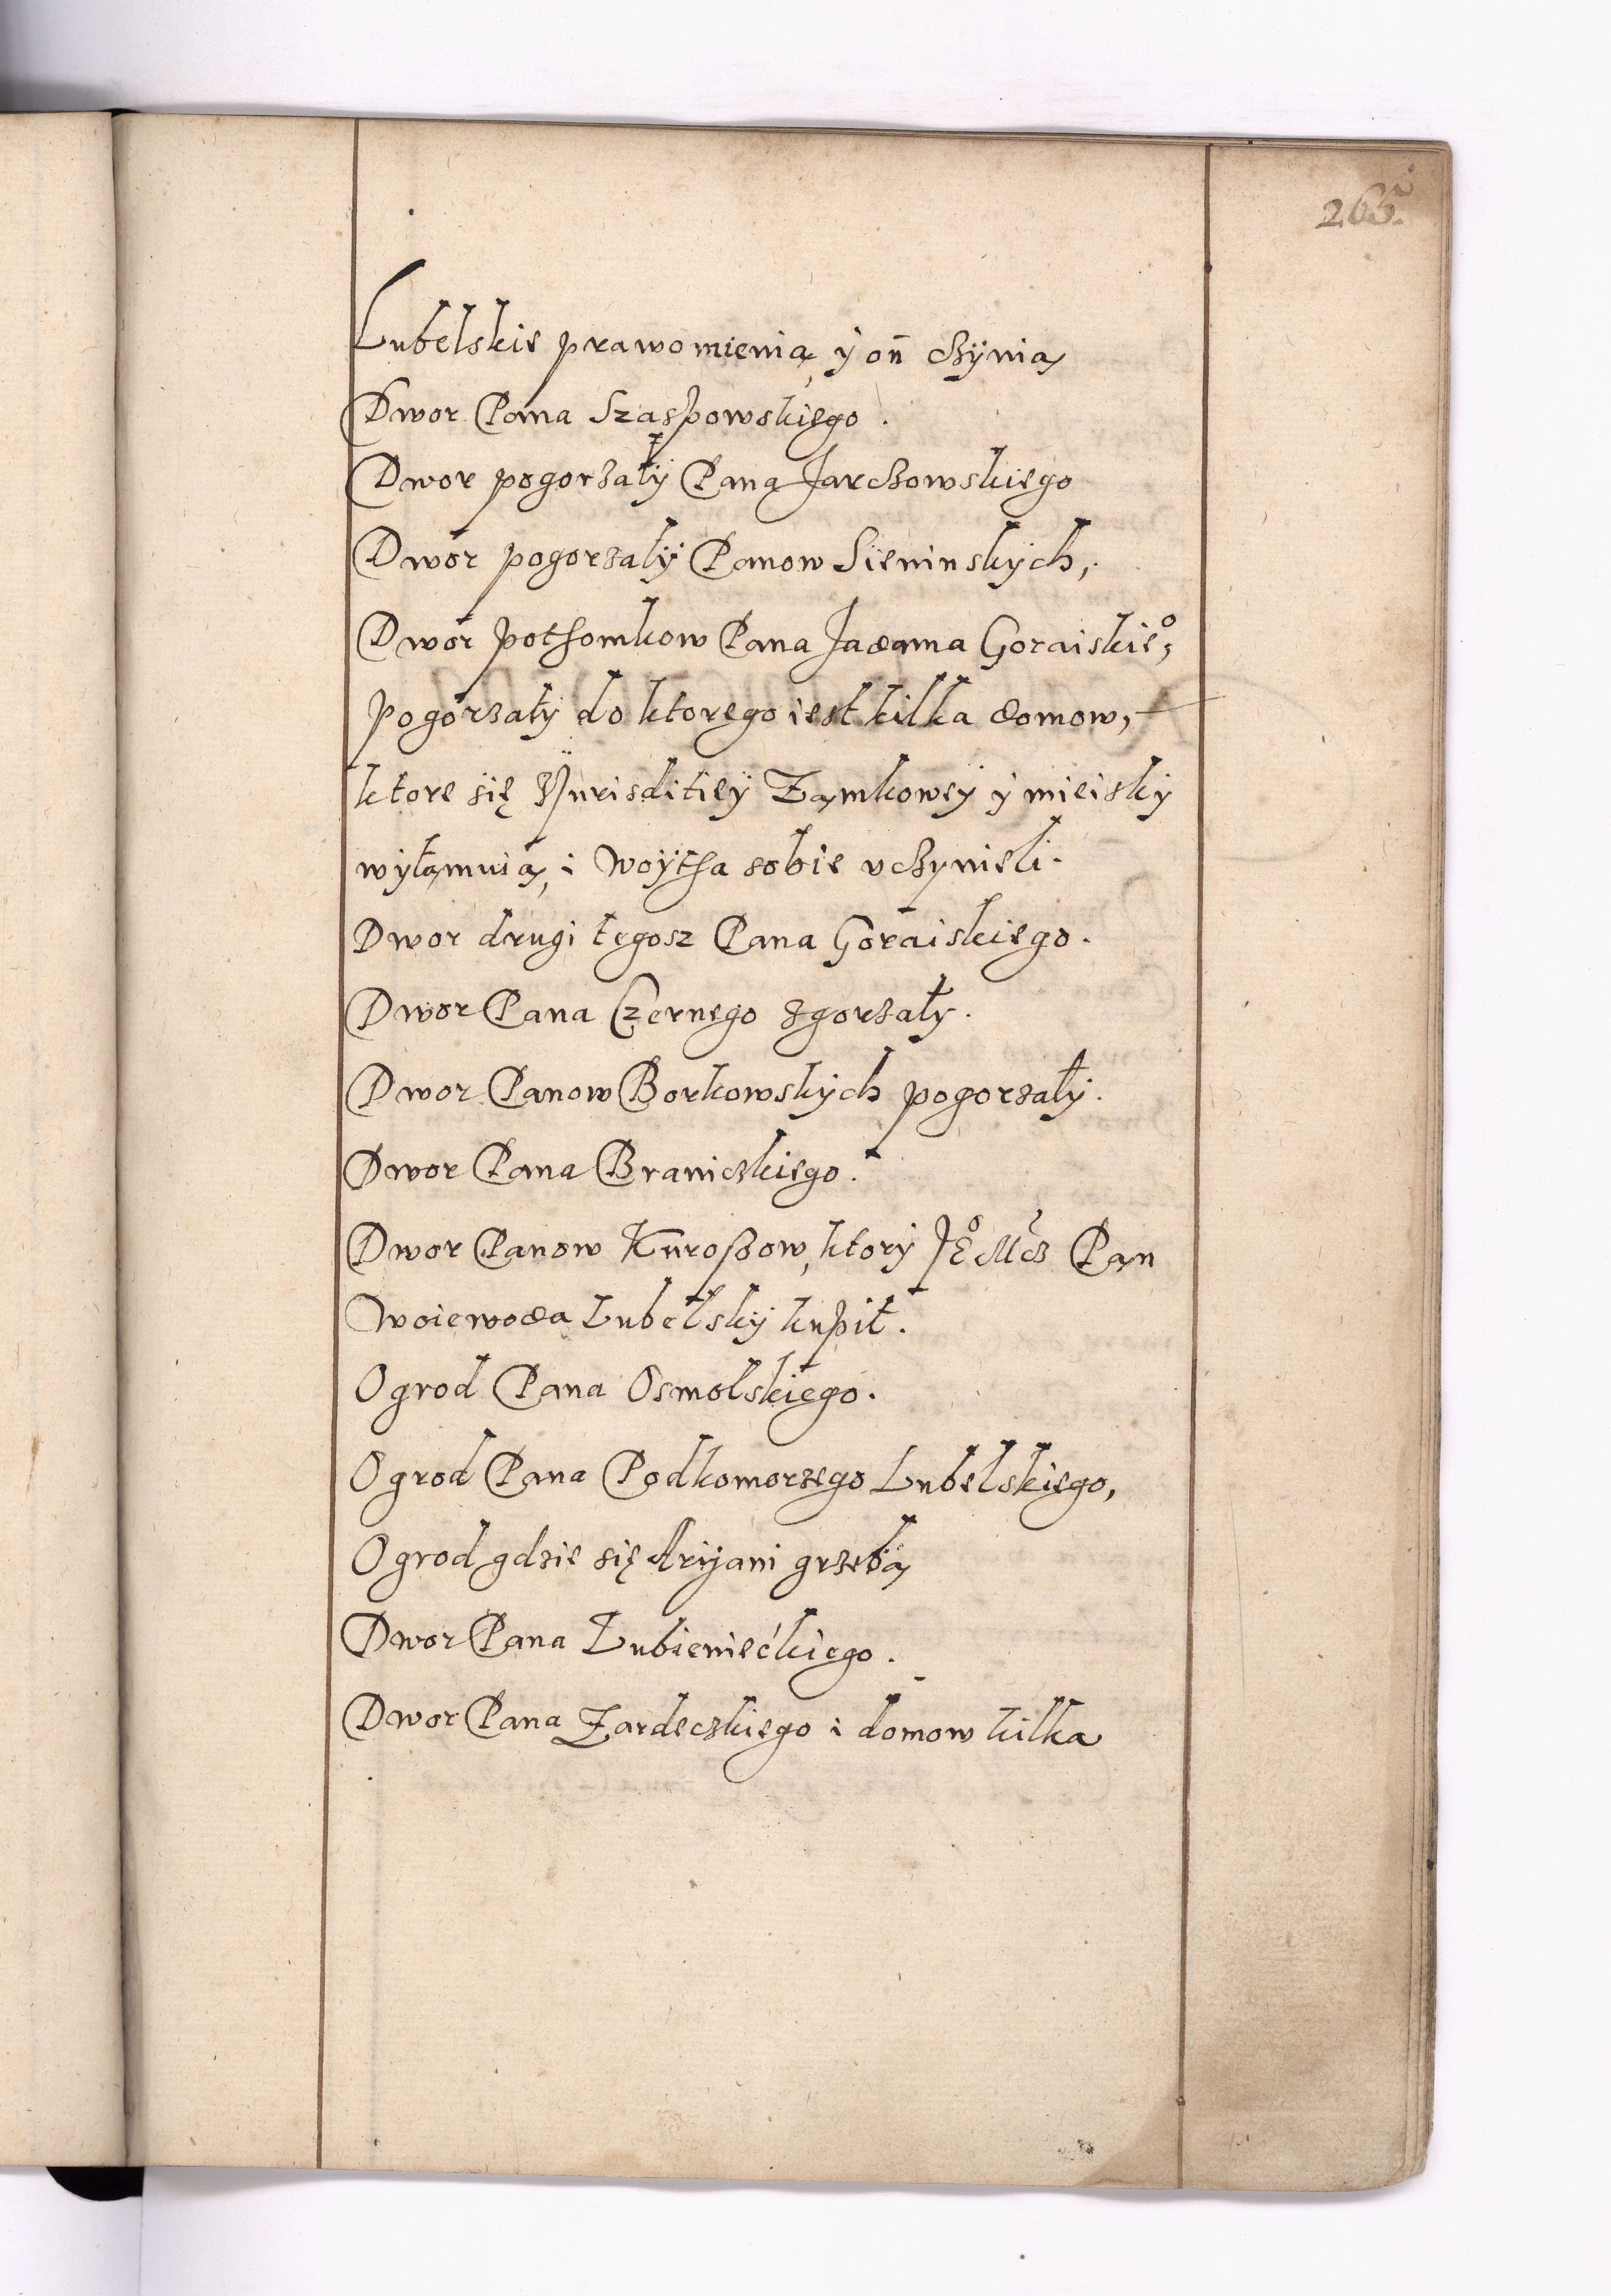 265.
Lubelskie prawo mienią, ÿ oñ czÿnią
Dwor Pana Szaspowskiego.
Dwor pogorzałÿ Pana Jarczowskiego
Dwor pogorzałÿ Panow Sieninskÿch,
Dwor pothomkow Pana Jadama Goraiskie°,
pogorzałÿ do ktorego iest kilka domow,
ktore się z Jurisditieÿ Zamkoweÿ ÿ mieiskÿ
wÿłamuią, i Woÿtha sobie uczÿnieli.
Dwor drugi tegosz Pana Goraiskiego.
Dwor Pana Czernego zgorzałÿ.
Dwor Panow Borkowskÿch pogorzałÿ.
Dwor Pana Braniczkiego.
Dwor Panow Kuroßow, ktorÿ Je° Mcz Pan
Woiewoda Lubelskÿ kupił.
Ogrod Pana Osmolskiego.
Ogrod Pana Podkomorzego Lubelskiego,
Ogrod gdzie się Arÿani grzebią
Dwor Pana Lubienieckiego.
Dwor Pana Zardeczkiego i domow kilka